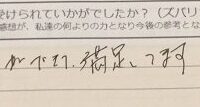 受けられていかがでしたか？（ズバリ
感想が、私達の何よりの力となり今後の参考とな
ができ、満足してます